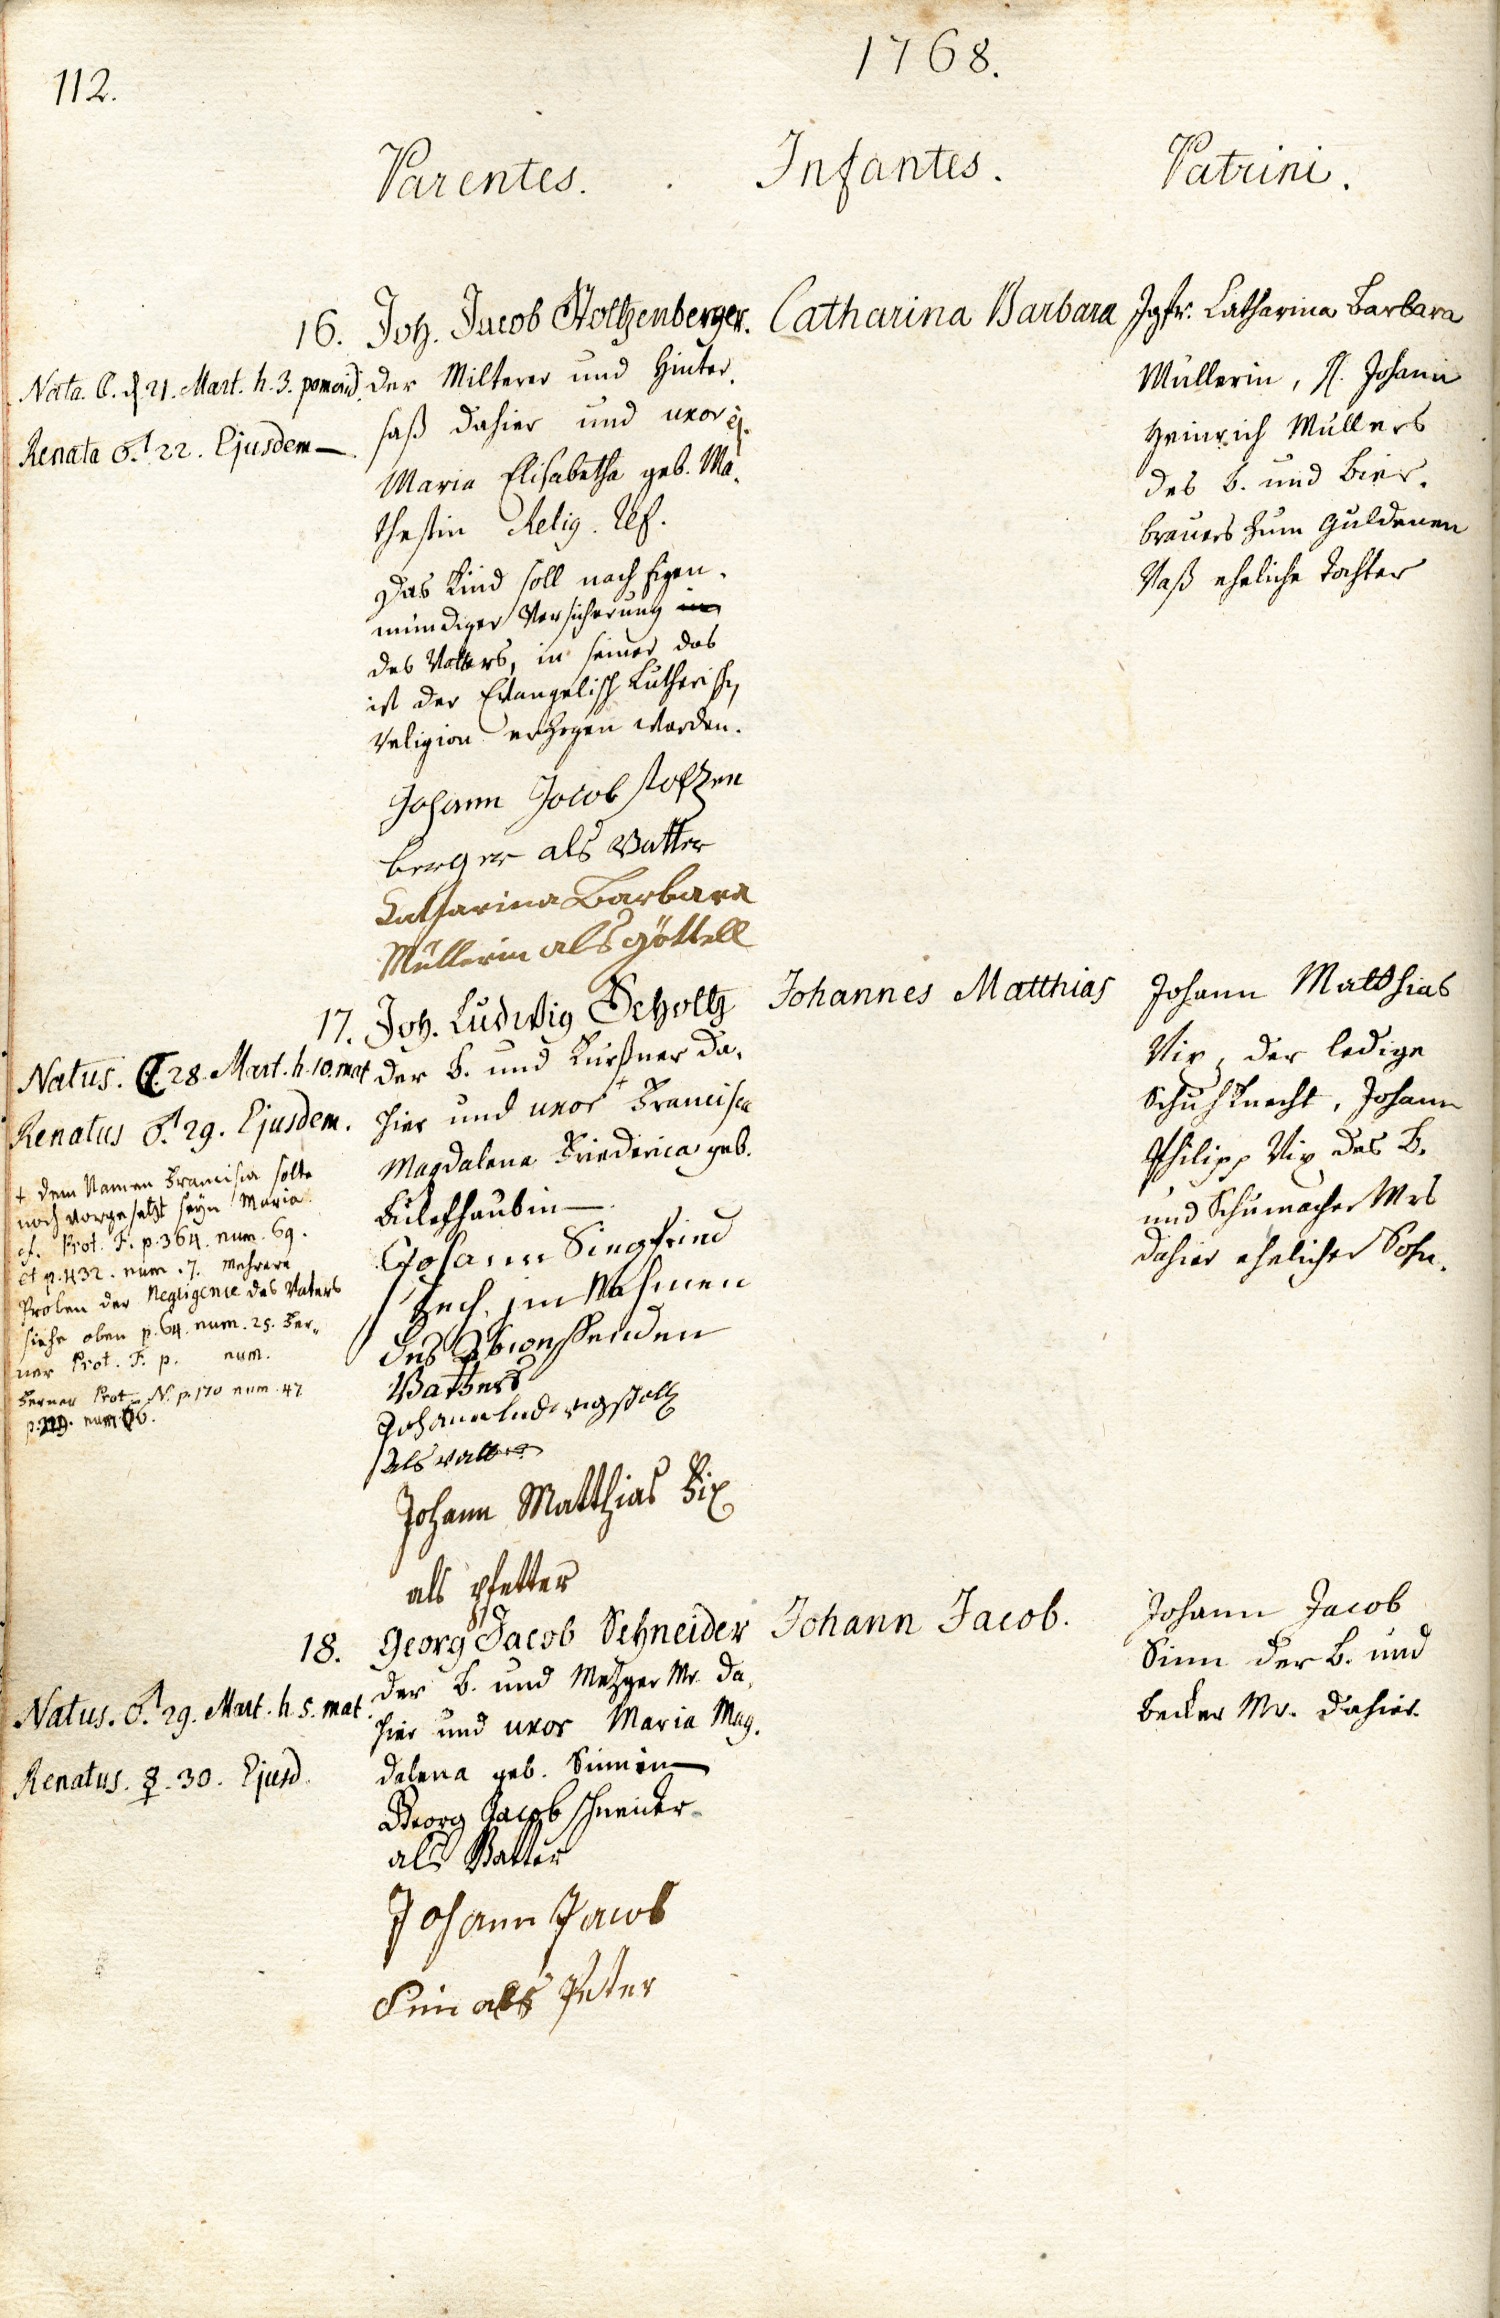 112.
1768.
Parentes. Infantes. Patrini.
16. Joh. Jacob Stoltzenberger. Catharina Barbara
Nata 21. Mart. h. 3. pomerid.
Renata ♂. 22. Ejusdem
der Milterer und Hinter-
saß dahier und uxor ej.
Maria Elisabetha geb. Ma-
thesin Relig. Ref.
Das Kind soll nach Eigen-
mündiger Versicherung in
des Vatters, in seiner das
ist der Evangelisch Lutherisch
Religion erzogen werden.
Johann Jacob stolzen
berger als Vatter
Catharina Barbara
Müllerin als göttell
Jgfr. Catharina Barbara
Müllerin, Johann
Heinrich Müllers
des B. und Bier-
brauers zum Guldenen
Vaß eheliche Tochter
17. Joh. Ludwig Scholtz Johannes Matthias
Natus. ☾. 28. Mart. h. 10. mat
Renatus ♂. 29. Ejusdem.
+ dem Namen Francisca solte
noch vorgesetzt seyn Maria.
cf. Prot. F. p. 364. num. 69.
et p. 432. num. 7. mehrere
Proben der Negligence des Vaters
siehe oben p. 64. num. 25. Fer-
ner Prot. F. p. num.
Ferner Prot. N. p. 170 num. 47
der B. und Kürßner da-
hier und uxor + Francisca
Magdalena Friederica geb.
Johann Siegfried
Zech im Nahmen
des Abwessenden
Vatters
Johann Ludwig Scholtz
als vatter
Johann Matthias Fix
als pfetter
Johann Matthias
Vix, der ledige
Schuhknecht, Johann
Philipp Vix des B.
und Schumacher Mrs
dahier ehelicher Sohn.
18. Georg Jacob Schneider Johann Jacob.
Natus. ♂. 29. Mart. h. 5. mat.
Renatus. ☿. 30. Ejusd.
der B. und Metzger Mr. da-
hier und uxor Maria Mag-
dalena geb. Sinnin
Georg Jacob schneider
als Vatter
Johann Jacob
Sin als Peter
Johann Jacob
Sinn der B. und
becker Mr. dahier.